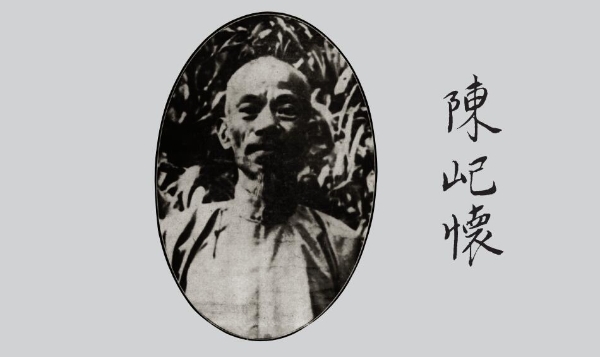 陳屺懷